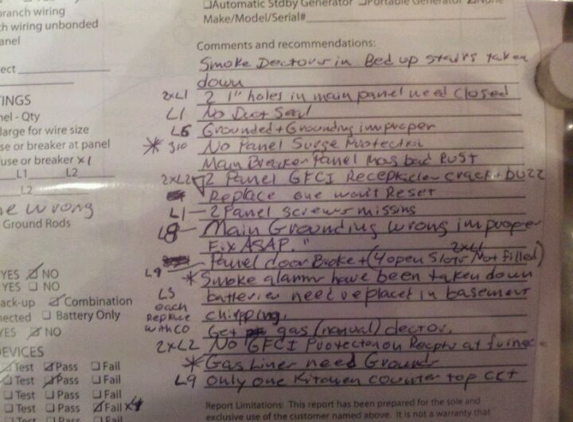 ☐Automatic Stdby Generator ☐Portable Generator
Make/Model/Serial#
branch wiring
ch wiring unbonded
anel
ect
Comments and recommendations:
Smoke Dectours in Bed up stairs taken
down
2xL1 2 1" holes in main panel need closed
L1 No Duct Seal
L6 Grounded + Grounding improper
* S10 No Panel Surge Protection
Main Breaker Panel has bad Rust
2xL2 2 Panel GFCI Receptacles crack buzz
Replace one won't Reset
L1 - 2 Panel screws missing
L8 - Main Grounding wrong improper
Fix ASAP."
2xL1
Panel door Broke + (4 open Slots Not Filled)
L9 * Smoke alarms have been taken down
L3 batteries need replaced in basement
each
Replace chirpping.
with CO Get gas (natural) dector.
2xL2 No GFCI Protection Recpt at furnace
* Gas Liner need Ground
L9 only one Kitchen counter top CCT
TINGS
nel - Qty
large for wire size
se or breaker at panel
use or breaker x1
L1 L2
L2
e wrong
Ground Rods
YES ☑ NO
YES ☐ NO
ack-up ☑ Combination
nected ☐ Battery Only
YES ☑ NO
DEVICES
Test ☑ Pass ☐ Fail
Test ☑ Pass ☐ Fail
☐ Test ☐ Pass ☑ Fail x4
☐ Test ☐ Pass ☐ Fail
Report Limitations: This report has been prepared for the sole and
exclusive use of the customer named above. It is not a warranty that